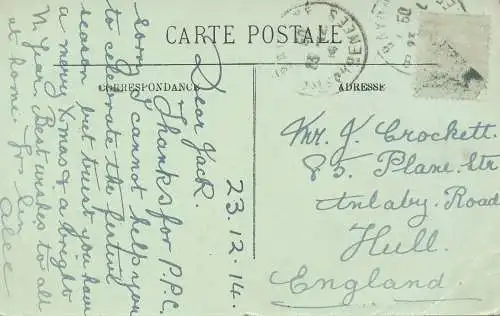 CARTE POSTALE
CORRESPONDANCE
ADRESSE
23.12.14.
Dear Jack.
Thanks for P.P.C.
Sorry I cannot help you
to celebrate the festive
season but trust you have
a merry Xmas & a bright
N. Year. Best wishes to all
at home
Alec
Mr. J. Crockett
85. Plane. Str
Anlaby. Road
Hull.
England.